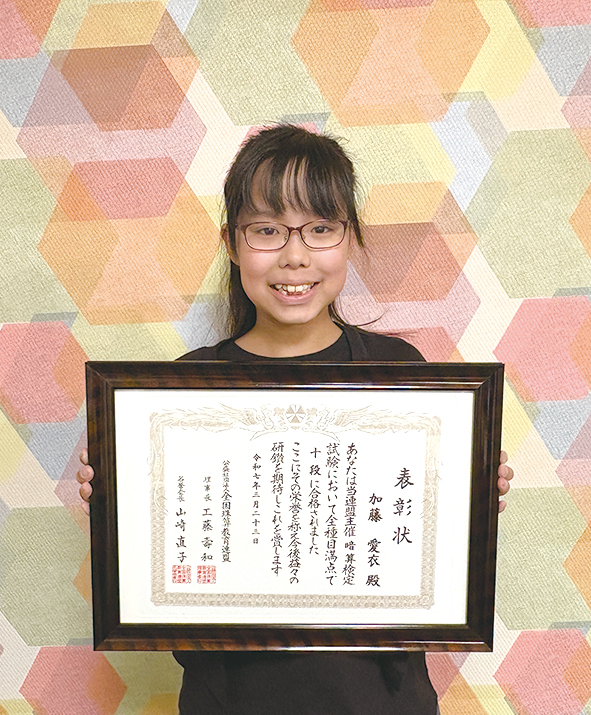 表彰状
加藤 愛衣 殿
あなたは当連盟主催暗算検定
試験において全種目満点で
十段に合格されました
ここにその栄誉を称え今後益々の
研鑽を期待しこれを賞します
令和七年三月二十三日
公益社団法人全国珠算教育連盟
理事長 工藤 壽和
名誉会長 山崎 直子